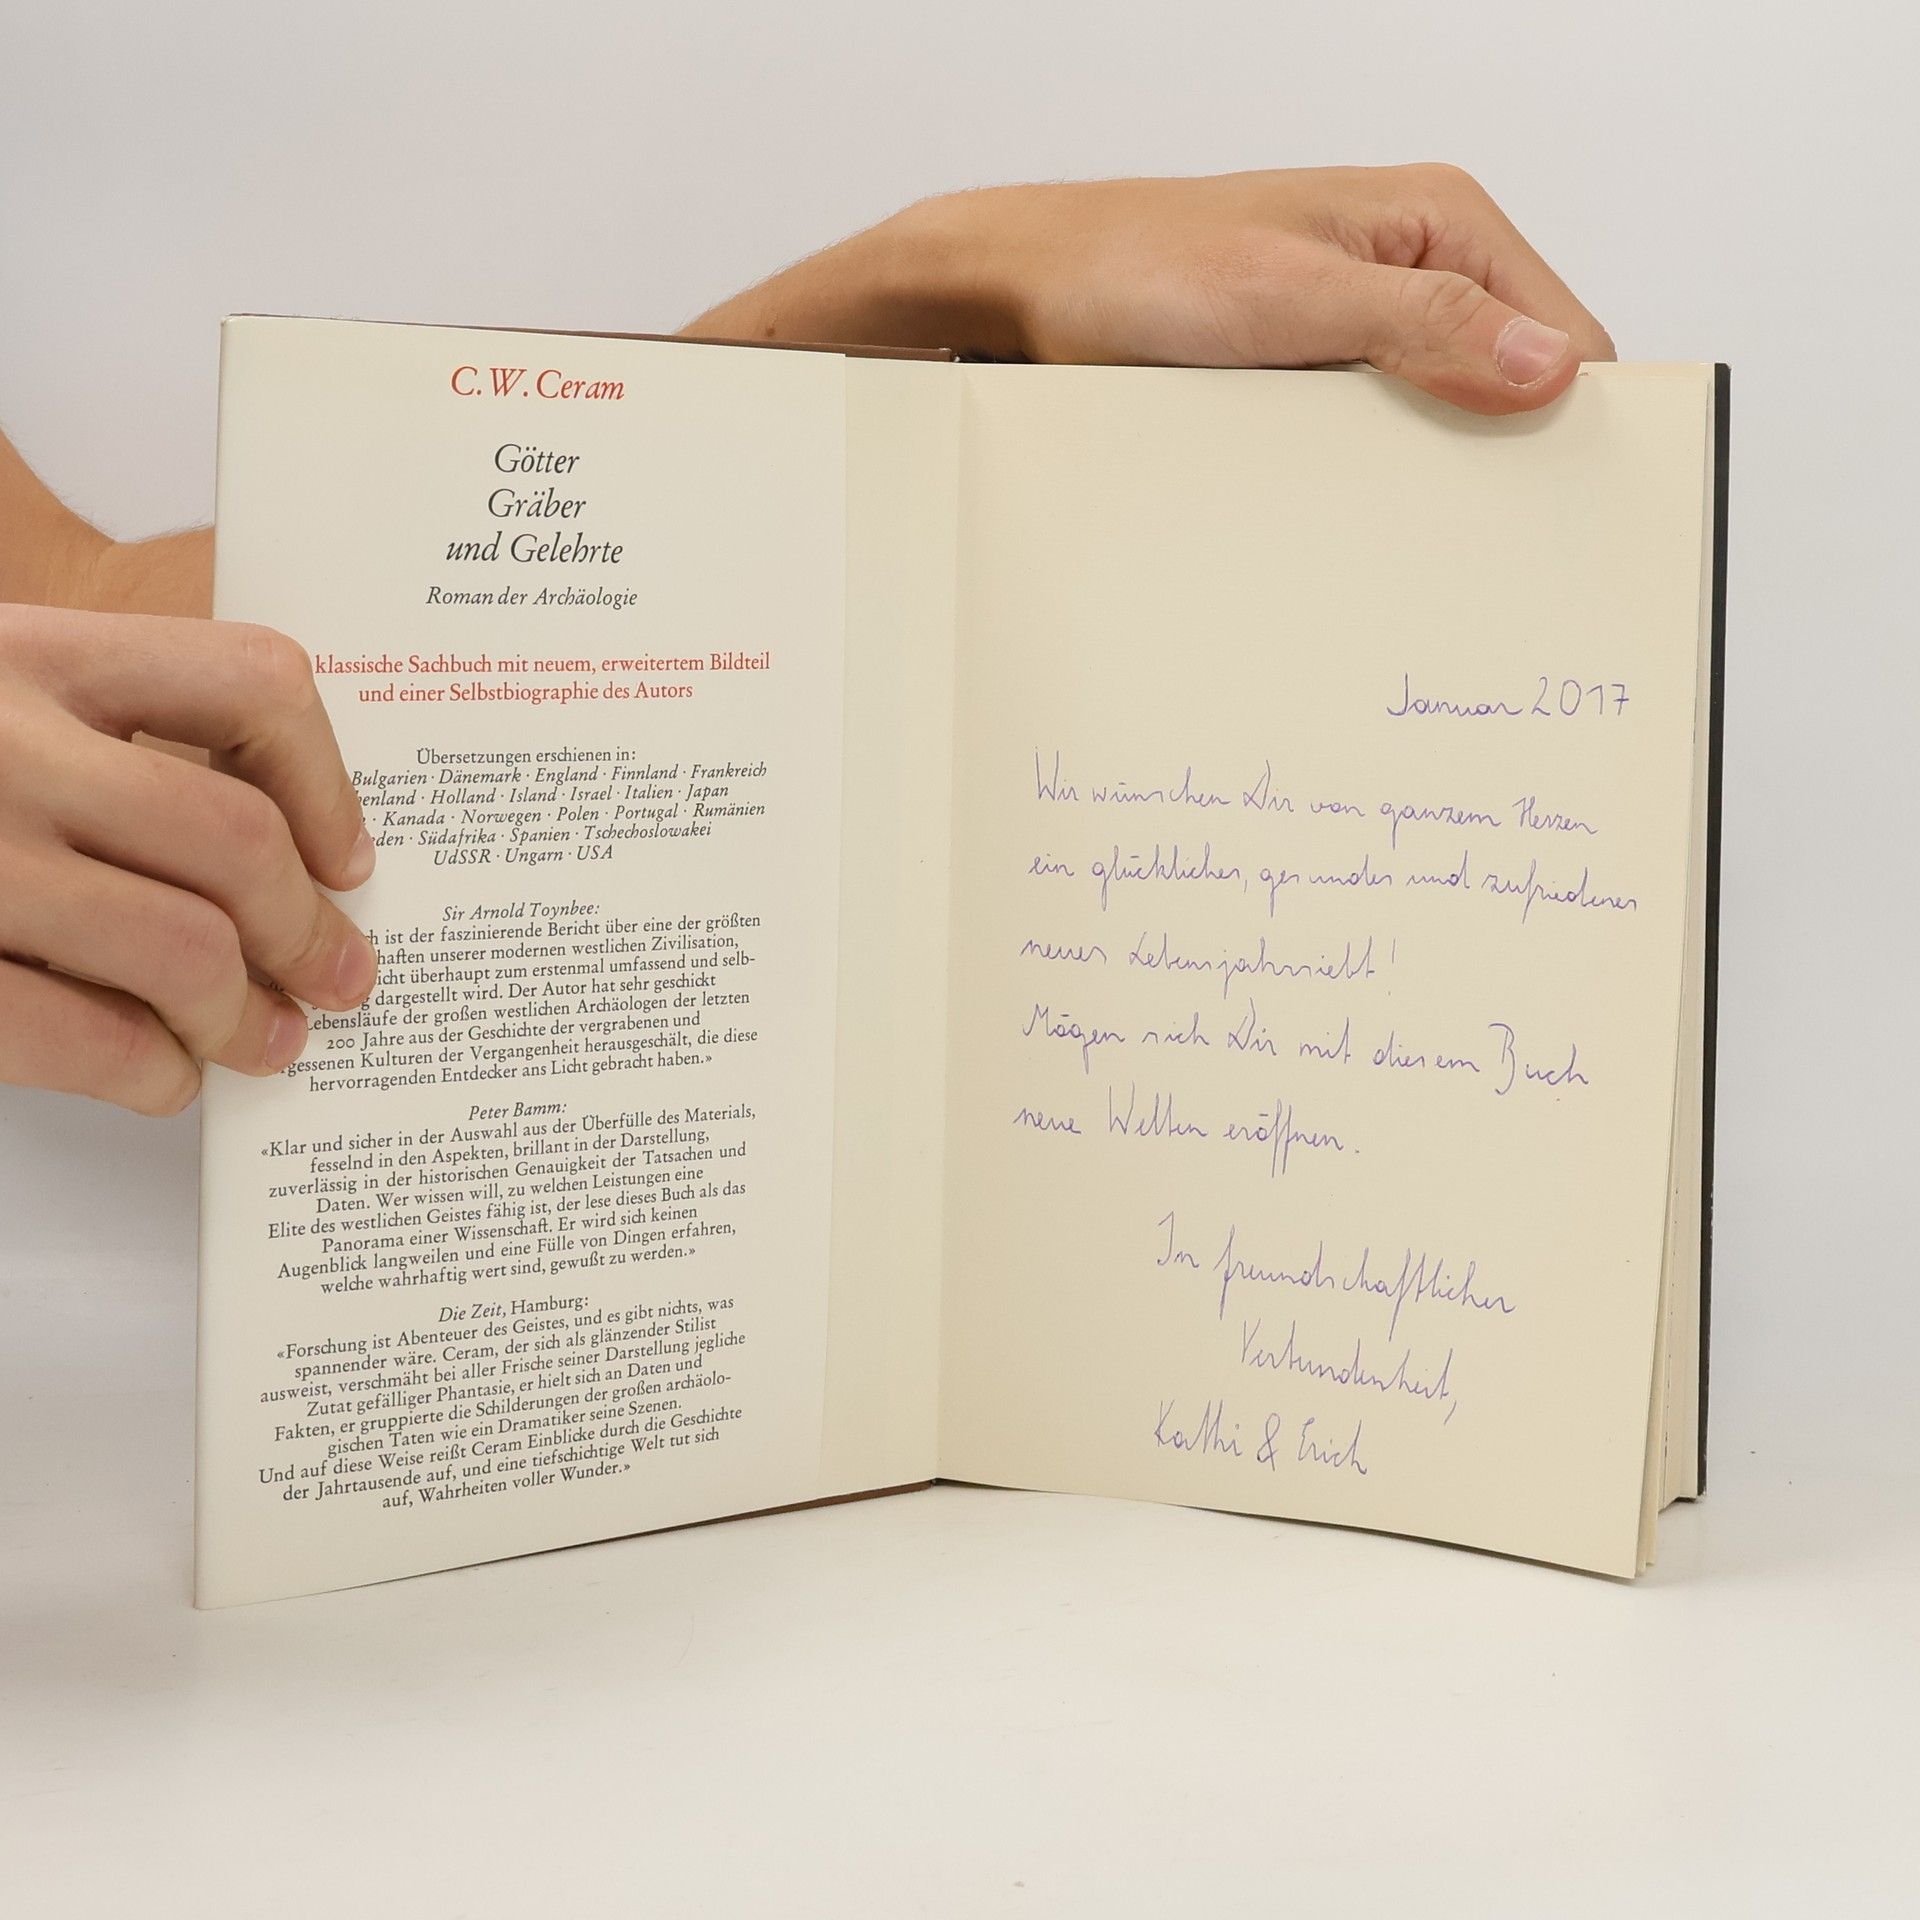 C.W. Ceram
Götter
Gräber
und Gelehrte
Roman der Archäologie
klassische Sachbuch mit neuem, erweitertem Bildteil
und einer Selbstbiographie des Autors
Übersetzungen erschienen in:
Bulgarien · Dänemark · England · Finnland · Frankreich
enland · Holland · Island · Israel · Italien · Japan
· Kanada · Norwegen · Polen · Portugal · Rumänien
eden · Südafrika · Spanien · Tschechoslowakei
UdSSR · Ungarn · USA
Sir Arnold Toynbee:
ch ist der faszinierende Bericht über eine der größten
haften unserer modernen westlichen Zivilisation,
icht überhaupt zum erstenmal umfassend und selb-
g dargestellt wird. Der Autor hat sehr geschickt
Lebensläufe der großen westlichen Archäologen der letzten
200 Jahre aus der Geschichte der vergrabenen und
gessenen Kulturen der Vergangenheit herausgeschält, die diese
hervorragenden Entdecker ans Licht gebracht haben.»
Peter Bamm:
«Klar und sicher in der Auswahl aus der Überfülle des Materials,
fesselnd in den Aspekten, brillant in der Darstellung,
zuverlässig in der historischen Genauigkeit der Tatsachen und
Daten. Wer wissen will, zu welchen Leistungen eine
Elite des westlichen Geistes fähig ist, der lese dieses Buch als das
Panorama einer Wissenschaft. Er wird sich keinen
Augenblick langweilen und eine Fülle von Dingen erfahren,
welche wahrhaftig wert sind, gewußt zu werden.»
Die Zeit, Hamburg:
«Forschung ist Abenteuer des Geistes, und es gibt nichts, was
spannender wäre. Ceram, der sich als glänzender Stilist
ausweist, verschmäht bei aller Frische seiner Darstellung jegliche
Zutat gefälliger Phantasie, er hielt sich an Daten und
Fakten, er gruppierte die Schilderungen der großen archäolo-
gischen Taten wie ein Dramatiker seine Szenen.
Und auf diese Weise reißt Ceram Einblicke durch die Geschichte
der Jahrtausende auf, und eine tiefschichtige Welt tut sich
auf, Wahrheiten voller Wunder.»
Januar 2017
Wir wünschen Dir von ganzem Herzen
ein glückliches, gesundes und zufriedenes
neues Lebensjahrsiebt!
Mögen sich Dir mit diesem Buch
neue Welten eröffnen.
In freundschaftlicher
Verbundenheit,
Kathi & Erich